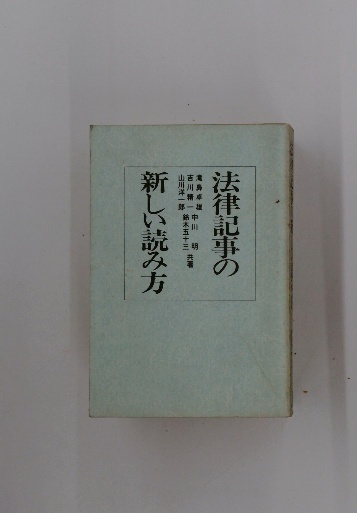 法律記事の
滝鼻卓雄 中川 明
吉川精一 鈴木五十三 共著
山川洋一郎
新しい読み方